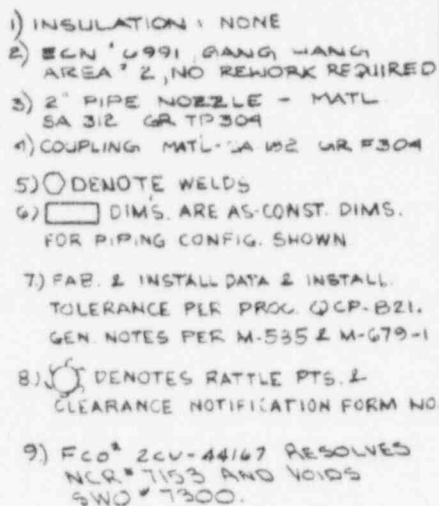 1) INSULATION: NONE
2) ECN # 6991, GANG HANG
AREA # 2, NO REWORK REQUIRED
3) 2" PIPE NOZZLE - MATL
SA 312 GR TP304
4) COUPLING MATL-SA 182 GR F304
5) DENOTE WELDS
6) DIM'S. ARE AS-CONST. DIMS.
FOR PIPING CONFIG. SHOWN
7.) FAB. & INSTALL DATA & INSTALL.
TOLERANCE PER PROC. QCP-B21.
GEN. NOTES PER M-535 & M-679-1
8.) DENOTES RATTLE PTS. &
CLEARANCE NOTIFICATION FORM NO
9.) FCO# 2CV-44167 RESOLVES
NCR# 7153 AND VOIDS
SWO # 7300.